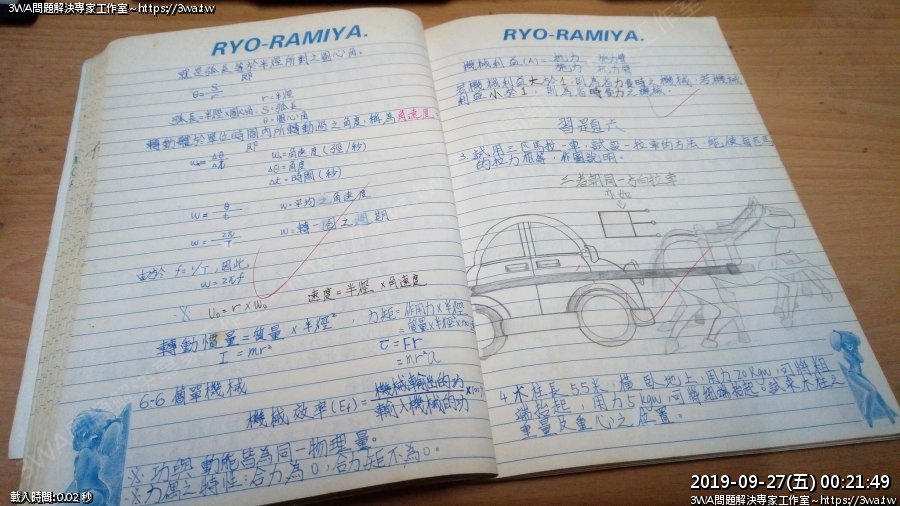 3WA問題解決專家工作室~https://3wa.tw
RYO-RAMIYA.
就是弧長等於半徑所對之圓心角。
θ = S/r
r=半徑
弧長=半徑×圓心角 S=弧長
θ=圓心角
轉動體於單位時間內所轉動過之角度,稱為角速度。
ω₀ = Δθ/Δt
ω₀=角速度(弧/秒)
Δθ=角度
Δt=時間(秒)
ω = θ/t ω=平均之角速度
ω = 2π/T ω=轉一圈之週期
由於 f=1/T,因此,
ω=2πf
※ υ₀=r×ω₀ 速度=半徑×角速度
轉動慣量=質量×半徑², 力矩=作用力×半徑
I=mr²
τ=Fr
6-6 簡單機械
機械效率(Ef)=機械輸出的功/輸入機械的功
※功與動能皆為同一物理量。
※力偶之特性:合力為0,合力矩不為0。
RYO-RAMIYA.
機械利益(A)=
若機械利益大於1,則為省力費時之機械,若機械
利益小於1,則為省時費力之機械。
習題六
3.試用三匹馬拉一車,試設一拉車的方法,能使每匹馬
的拉力相等,作圖說明。
三者朝同一方向拉車
4.木柱長55米,橫臥地上,用力70kgw,可將粗
端抬起,用力5kgw,可將細端抬起。試求木柱之
重量及重心之位置。
載入時間:0.02 秒
2019-09-27(五) 00:21:49
3WA問題解決專家工作室~https://3wa.tw